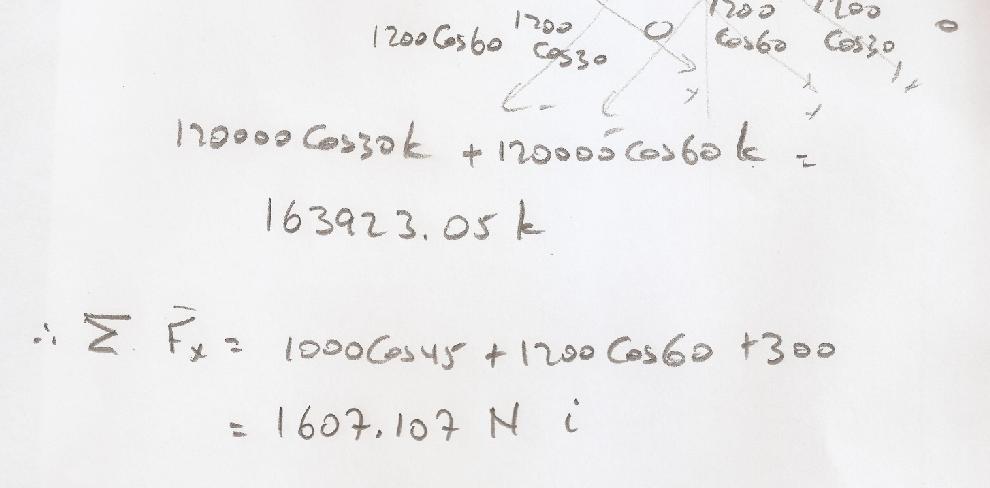 1200 1200 1200
1200 Cos60 Cos30 0 Cos60 Cos30 0
120000 Cos30k + 120000 Cos60 k =
163923.05 k
∴ Σ F̄x = 1000Cos45 + 1200 Cos60 +300
= 1607.107 N i